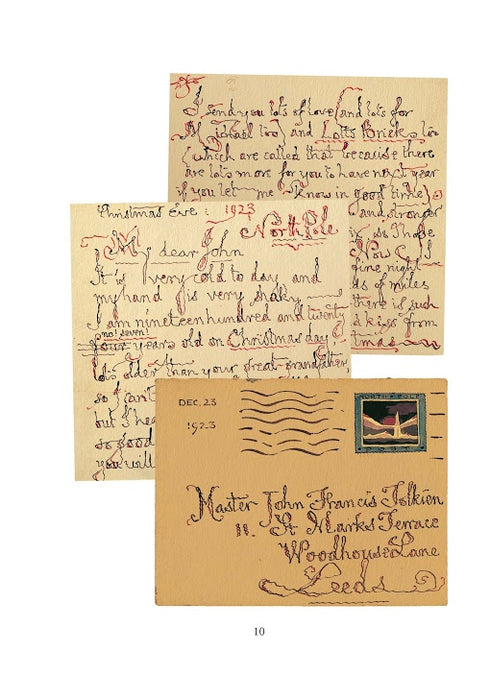 Christmas Eve : 1923
North Pole
My dear John
It is very cold to day and
my hand is very shaky —
I am nineteenhundred and twenty
no! seven!
four years old on Christmas day
lots older than your great-grandfather,
so I can't
but I
so good
you will
I send you lots of love (and lots for
Michael too) and Lotts Bricks too
(which are called that because there
are lots more for you to have next year
if you let me know in good time)
and stronger
so those
Now I
fine night
of miles
there is such
kiss from
DEC. 23
1923
NORTH POLE
Master John Francis Tolkien
11. St Marks Terrace
Woodhouse Lane
Leeds
10